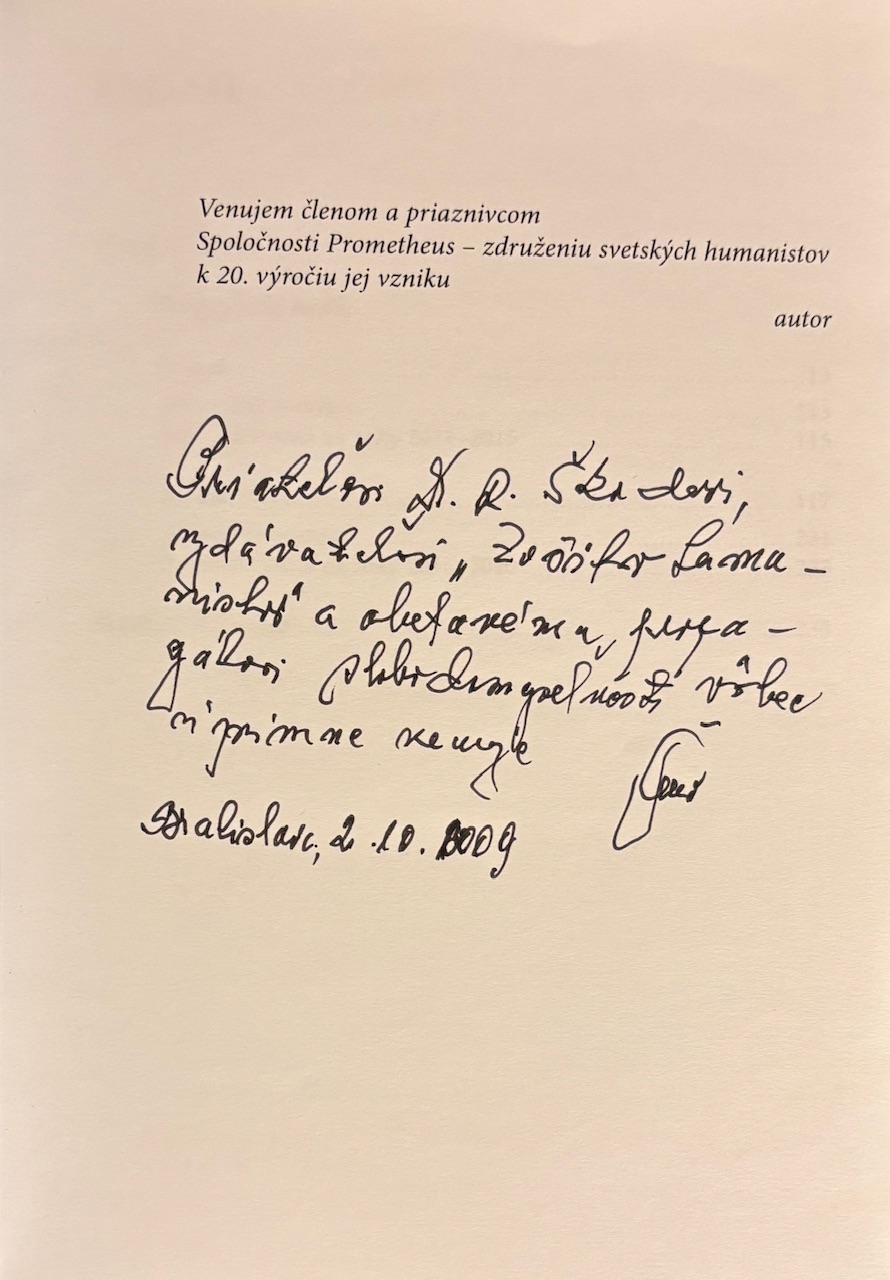 Venujem členom a priaznivcom
Spoločnosti Prometheus – združeniu svetských humanistov
k 20. výročiu jej vzniku
autor
Priateľovi R. Škodovi,
vydávateľovi „Zošitov huma-
nistov“ a obetavému propa-
gátorovi slobodomyseľnosti vôbec
úprimne venuje
Bratislava, 2.10.2009